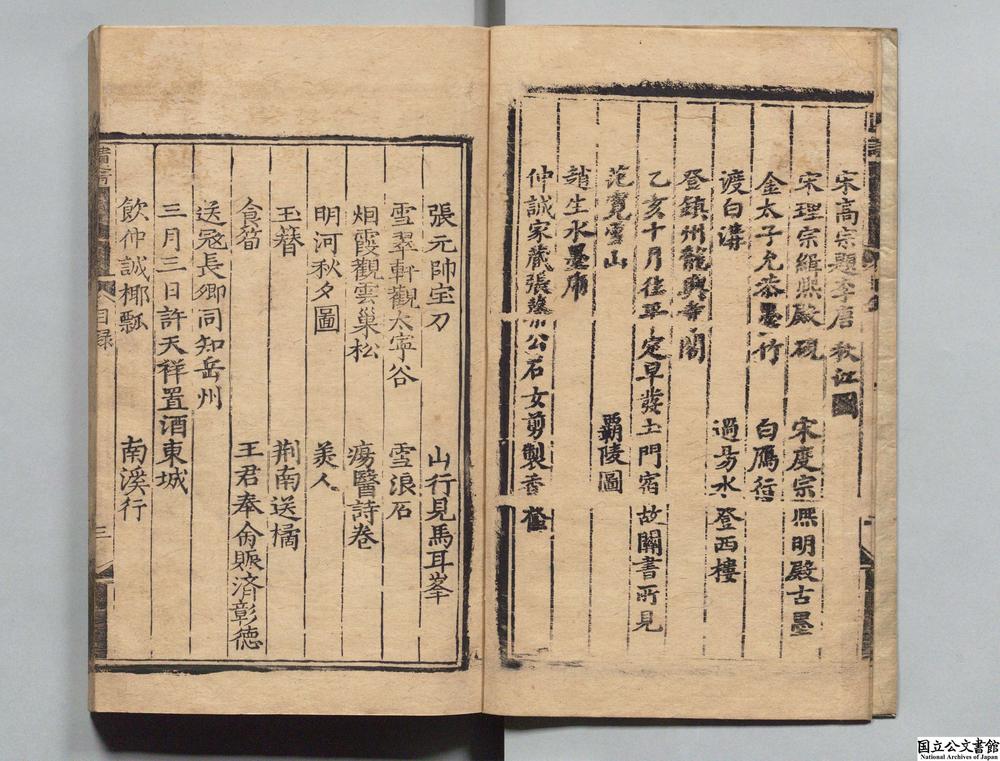 宋高宗題李唐秋江圖
宋理宗緝熙殿硯 宋度宗熙明殿古墨
金太子允恭墨竹 白鴈行
渡白溝 過易水 登西樓
登鎮州龍興寺閣
乙亥十月往平定早發土門宿故關書所見
范寬雪山 覇陵圖
趙生水墨
仲誠家藏張公石女剪製香
張元帥宝刀 山行見馬耳峯
雪翠軒觀太寧谷 雪浪石
烱霞觀雲巢松 瘍醫詩卷
明河秋夕圖 美人
玉簪 荆南送橘
食筍 王君奉侖賑済彰德
送冦長卿同知岳州
三月三日許天祥置酒東城
飲仲誠椰瓢 南溪行
目録
三
国立公文書館
National Archives of Japan